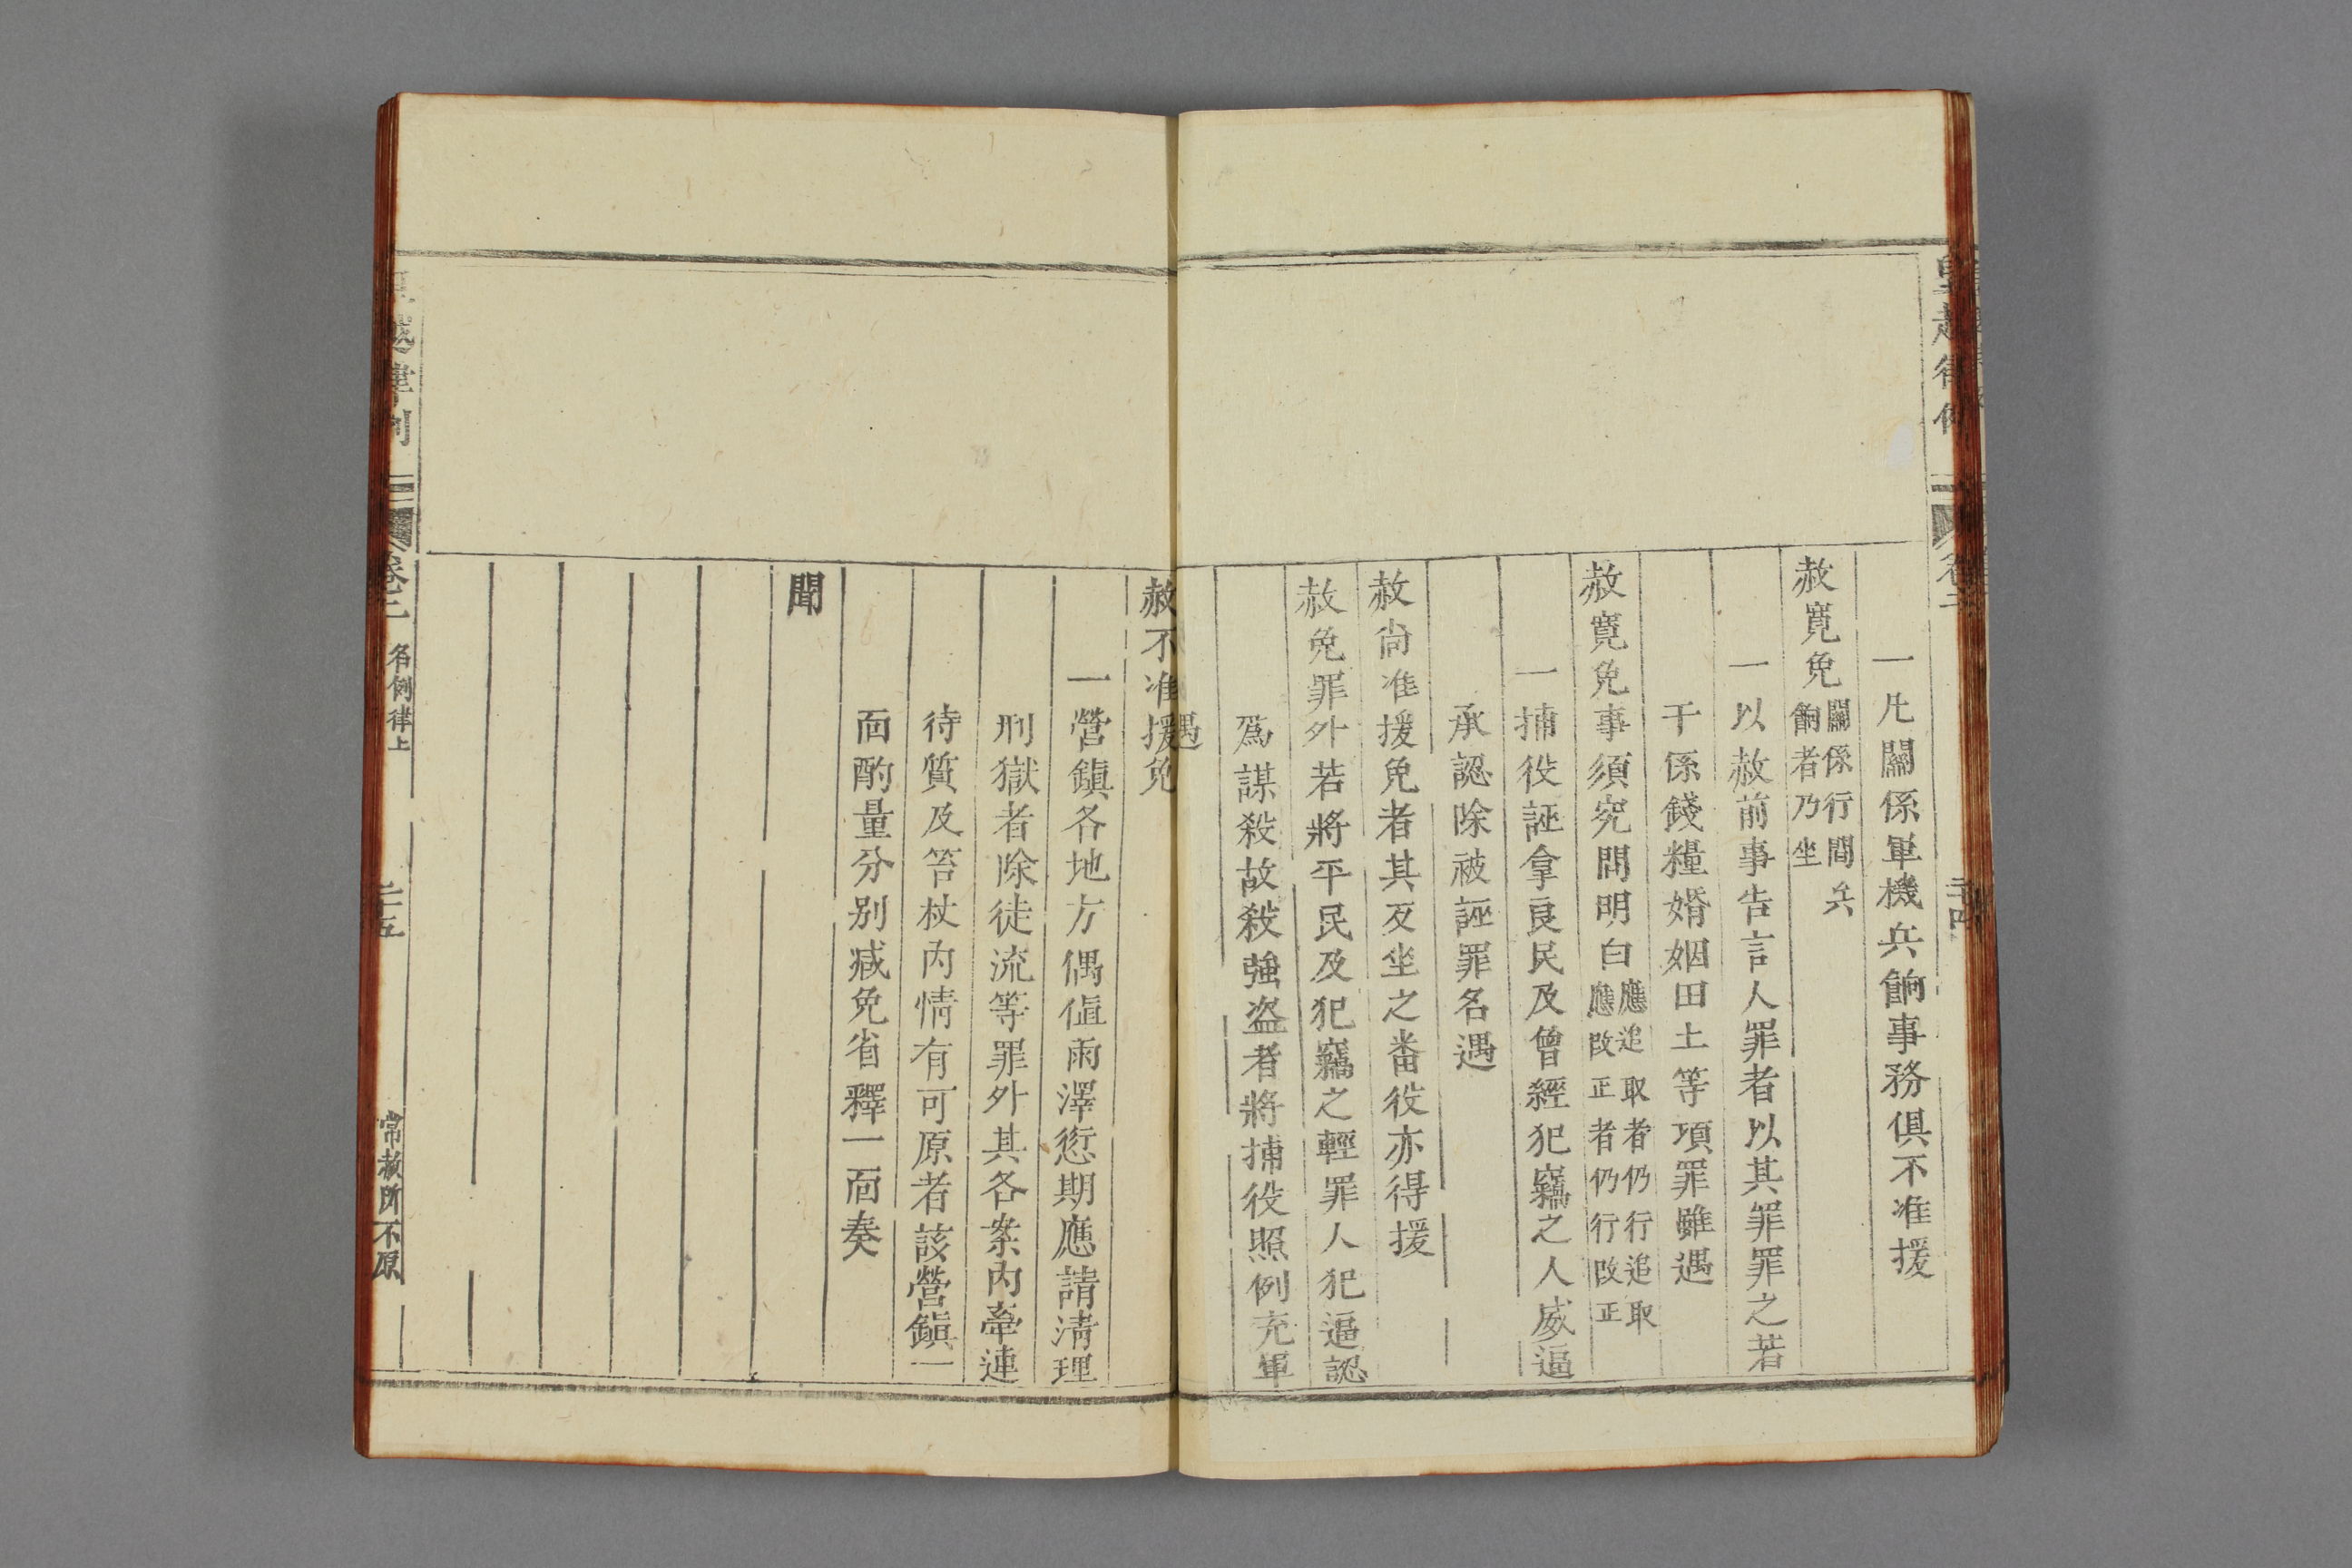 一凡關係軍機兵餉事務俱不准援
赦寬免關係行間兵餉者乃坐
一以赦前事告言人罪者以其罪罪之若
干係錢糧婚姻田土等項罪雖遇
赦寬免事須究問明白應追取者仍行追取應改正者仍行改正
一捕役誣拿良民及曾經犯竊之人威逼
承認除被誣罪名遇
赦尚准援免者其反坐之畨役亦得援
赦免罪外若將平民及犯竊之輕罪人犯逼認
爲謀殺故殺強盜者將捕役照例充軍
遇
赦不准援免
一營鎭各地方偶值雨澤愆期應請淸理
刑獄者除徒流等罪外其各案內牽連
待質及笞杖內情有可原者該營鎭一
面酌量分别减免省釋一面奏
聞
皇越律例
卷二
二十四
越律例
卷二
名例律上
二十五
常赦所不原